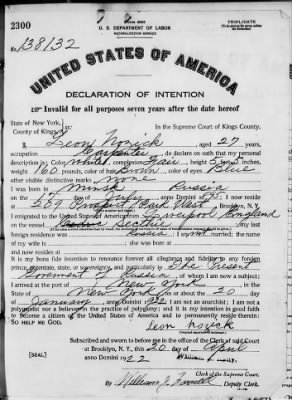 2300
U. S. DEPARTMENT OF LABOR
NATURALIZATION SERVICE
TRIPLICATE
No. 138132
UNITED STATES OF AMERICA
DECLARATION OF INTENTION
Invalid for all purposes seven years after the date hereof
State of New York,
County of Kings,
In the Supreme Court of Kings County.
I, Leon Novick, aged 27 years,
occupation, do declare on oath that my personal
description is: Color white, complexion Fair, height 5 feet inches,
weight 160 pounds, color of hair Brown, color of eyes Blue
other visible distinctive marks none
I was born in Minsk Russia
on the day of July, anno Domini; I now reside
at 209 Prospect Park West, Brooklyn, N. Y.
I emigrated to the United States of America from Liverpool England
on the vessel; my last
foreign residence was Russia; I am not married; the name
of my wife is; she was born at
and now resides at
It is my bona fide intention to renounce forever all allegiance and fidelity to any foreign
prince, potentate, state, or sovereignty, and particularly to The Present
Government of Russia, of whom I am now a subject;
I arrived at the port of New York, in the
State of New York, on or about the 20 day
of January, anno Domini; I am not an anarchist; I am not a
polygamist nor a believer in the practice of polygamy; and it is my intention in good faith
to become a citizen of the United States of America and to permanently reside therein:
SO HELP ME GOD.
Leon Novick
Subscribed and sworn to before me in the office of the Clerk of said Court
at Brooklyn, N. Y., this 20 day of April
anno Domini 1922
[SEAL]
Clerk of the Supreme Court.
By, Deputy Clerk.